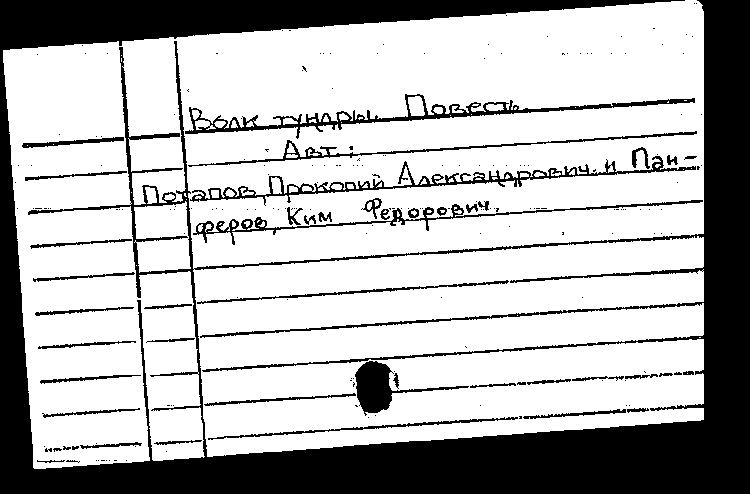 Волк тундры. Повесть.
Авт.:
Потапов, Прокопий Александрович. и Пан-
феров, Ким Федорович.